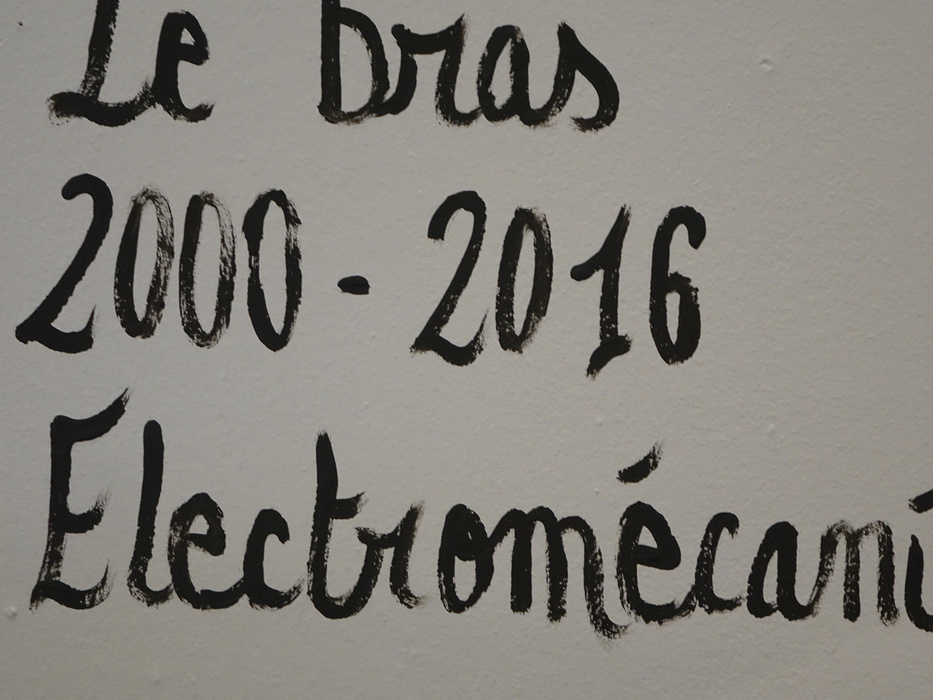 Le bras
2000 - 2016
Electromécani